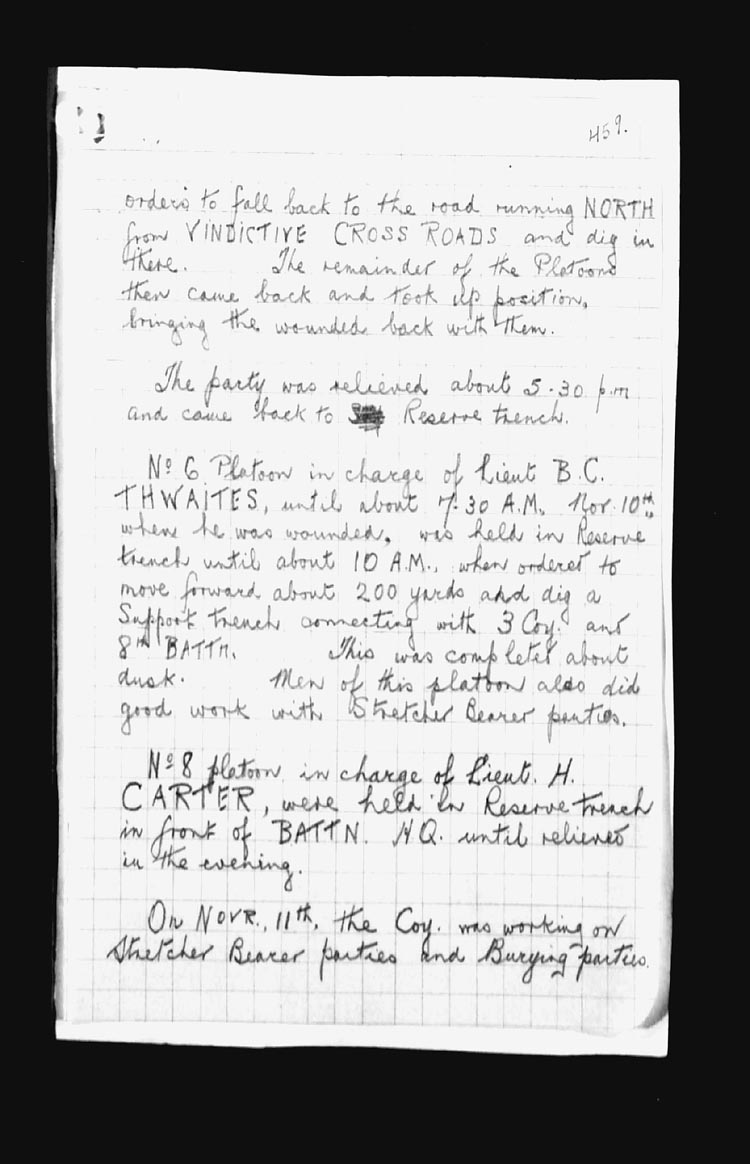 459.
orders to fall back to the road running NORTH
from VINDICTIVE CROSS ROADS and dig in
there. The remainder of the Platoons
then came back and took up position,
bringing the wounded back with them.
The party was relieved about 5.30 p.m
and came back to Reserve trench.
Nº 6 Platoon in charge of Lieut B.C.
THWAITES, until about 7.30 A.M. Nov. 10th
when he was wounded, was held in Reserve
trench until about 10 A.M., when ordered to
move forward about 200 yards and dig a
Support trench connecting with 3 Coy. and
8th BATTN. This was completed about
dusk. Men of this platoon also did
good work with Stretcher Bearer parties.
Nº 8 platoon in charge of Lieut. H.
CARTER, were held in Reserve trench
in front of BATTN. HQ. until relieved
in the evening.
On NOVR. 11th, the Coy. was working on
Stretcher Bearer parties and Burying parties.